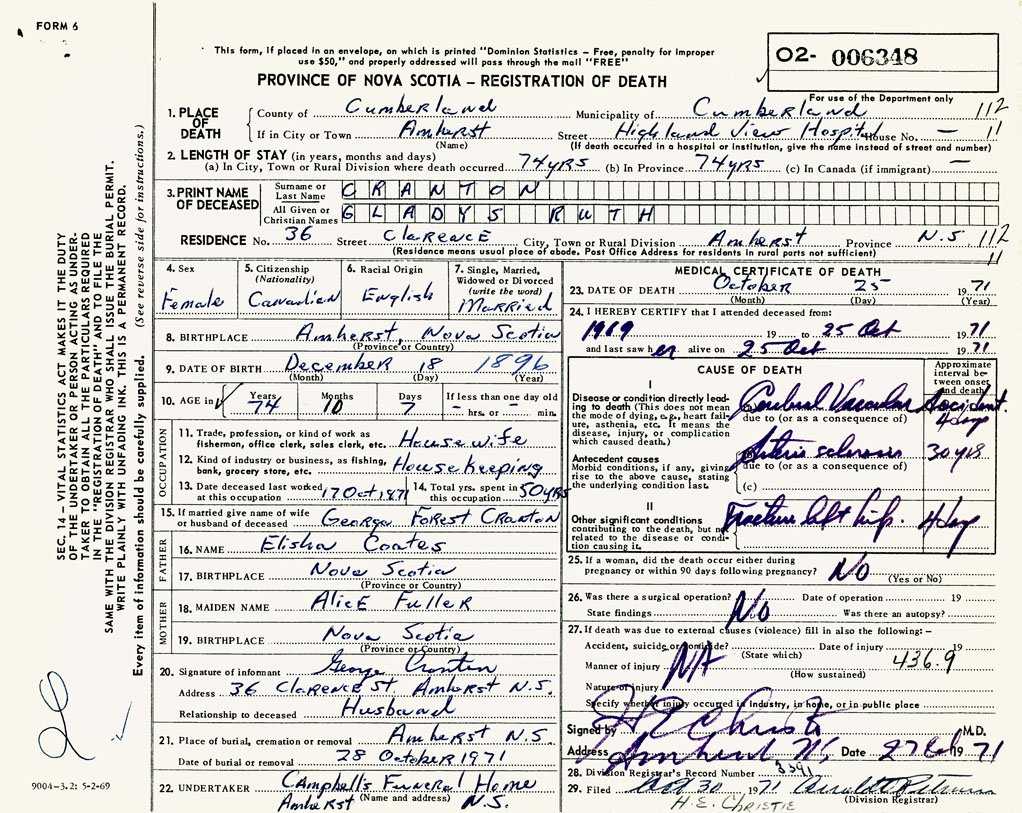 FORM 6
This form, if placed in an envelope, on which is printed "Dominion Statistics – Free, penalty for improper
use $50," and properly addressed will pass through the mail "FREE"
O2- 006348
PROVINCE OF NOVA SCOTIA – REGISTRATION OF DEATH
For use of the Department only
1. PLACE OF DEATH County of Cumberland Municipality of Cumberland 112
If in City or Town Amherst Street Highland View Hospital House No. – 11
(Name) (If death occurred in a hospital or institution, give the name instead of street and number)
2. LENGTH OF STAY (in years, months and days)
(a) In City, Town or Rural Division where death occurred 74 yrs (b) In Province 74 yrs (c) In Canada (if immigrant) –
3. PRINT NAME OF DECEASED Surname or Last Name CRANTON
All Given or Christian Names GLADYS RUTH
RESIDENCE No. 36 Street Clarence City, Town or Rural Division Amherst Province N.S. 112
(Residence means usual place of abode. Post Office Address for residents in rural parts not sufficient) 11
4. Sex Female
5. Citizenship (Nationality) Canadian
6. Racial Origin English
7. Single, Married, Widowed or Divorced (write the word) Married
8. BIRTHPLACE Amherst, Nova Scotia
(Province or Country)
9. DATE OF BIRTH December 18 1896
(Month) (Day) (Year)
10. AGE in Years 74 Months 10 Days 7 If less than one day old – hrs. or – min.
OCCUPATION
11. Trade, profession, or kind of work as
fisherman, office clerk, sales clerk, etc. Housewife
12. Kind of industry or business, as fishing,
bank, grocery store, etc. House Keeping
13. Date deceased last worked at this occupation 17 Oct, 1971
14. Total yrs. spent in this occupation 50 yrs
15. If married give name of wife
or husband of deceased George Forest Cranton
FATHER
16. NAME Elisha Coates
17. BIRTHPLACE Nova Scotia
(Province or Country)
MOTHER
18. MAIDEN NAME Alice Fuller
19. BIRTHPLACE Nova Scotia
(Province or Country)
20. Signature of informant George Cranton
Address 36 Clarence St, Amherst N.S.
Relationship to deceased Husband
21. Place of burial, cremation or removal Amherst N.S.
Date of burial or removal 28 October 1971
22. UNDERTAKER Campbell's Funeral Home
(Name and address)
Amherst N.S.
MEDICAL CERTIFICATE OF DEATH
23. DATE OF DEATH October 25 1971
(Month) (Day)
24. I HEREBY CERTIFY that I attended deceased from:
1969 19 to 25 Oct 1971
and last saw her alive on 25 Oct 1971
CAUSE OF DEATH
Approximate interval between onset and death
I
Disease or condition directly leading to death (This does not
mean the mode of dying, e.g., heart failure, asthenia, etc. It means the
disease, injury, or complication which caused death.)
(a) Cerebral Vascular Accident. 4 day
due to (or as a consequence of)
Antecedent causes
Morbid conditions, if any, giving rise to the above cause, stating
the underlying condition last.
Arterio sclerosis 30 yrs
due to (or as a consequence of)
(c)
II
Other significant conditions
contributing to the death, but not
related to the disease or condition causing it.
Fracture left hip. 4 day
25. If a woman, did the death occur either during
pregnancy or within 90 days following pregnancy? No (Yes or No)
26. Was there a surgical operation? No Date of operation 19
State findings Was there an autopsy?
27. If death was due to external causes (violence) fill in also the following:–
Accident, suicide or homicide? (State which) Date of injury 19
Manner of injury N/A (How sustained) 436.9
Nature of injury
Specify whether injury occurred in industry, in home, or in public place
Signed by H E Christie M.D.
Address Amherst NS Date 27 Oct 1971
28. Division Registrar's Record Number 3391
29. Filed Oct 30 1971
(Division Registrar)
H.E. CHRISTIE
SEC. 14 – VITAL STATISTICS ACT MAKES IT THE DUTY
OF THE UNDERTAKER OR PERSON ACTING AS UNDERTAKER
TO OBTAIN ALL THE PARTICULARS REQUIRED
IN THE "REGISTRATION OF DEATH" AND TO FILE THE
SAME WITH THE DIVISION REGISTRAR WHO SHALL ISSUE THE BURIAL PERMIT.
WRITE PLAINLY WITH UNFADING INK. THIS IS A PERMANENT RECORD.
Every item of information should be carefully supplied. (See reverse side for instructions.)
9004-3.2: 5-2-69